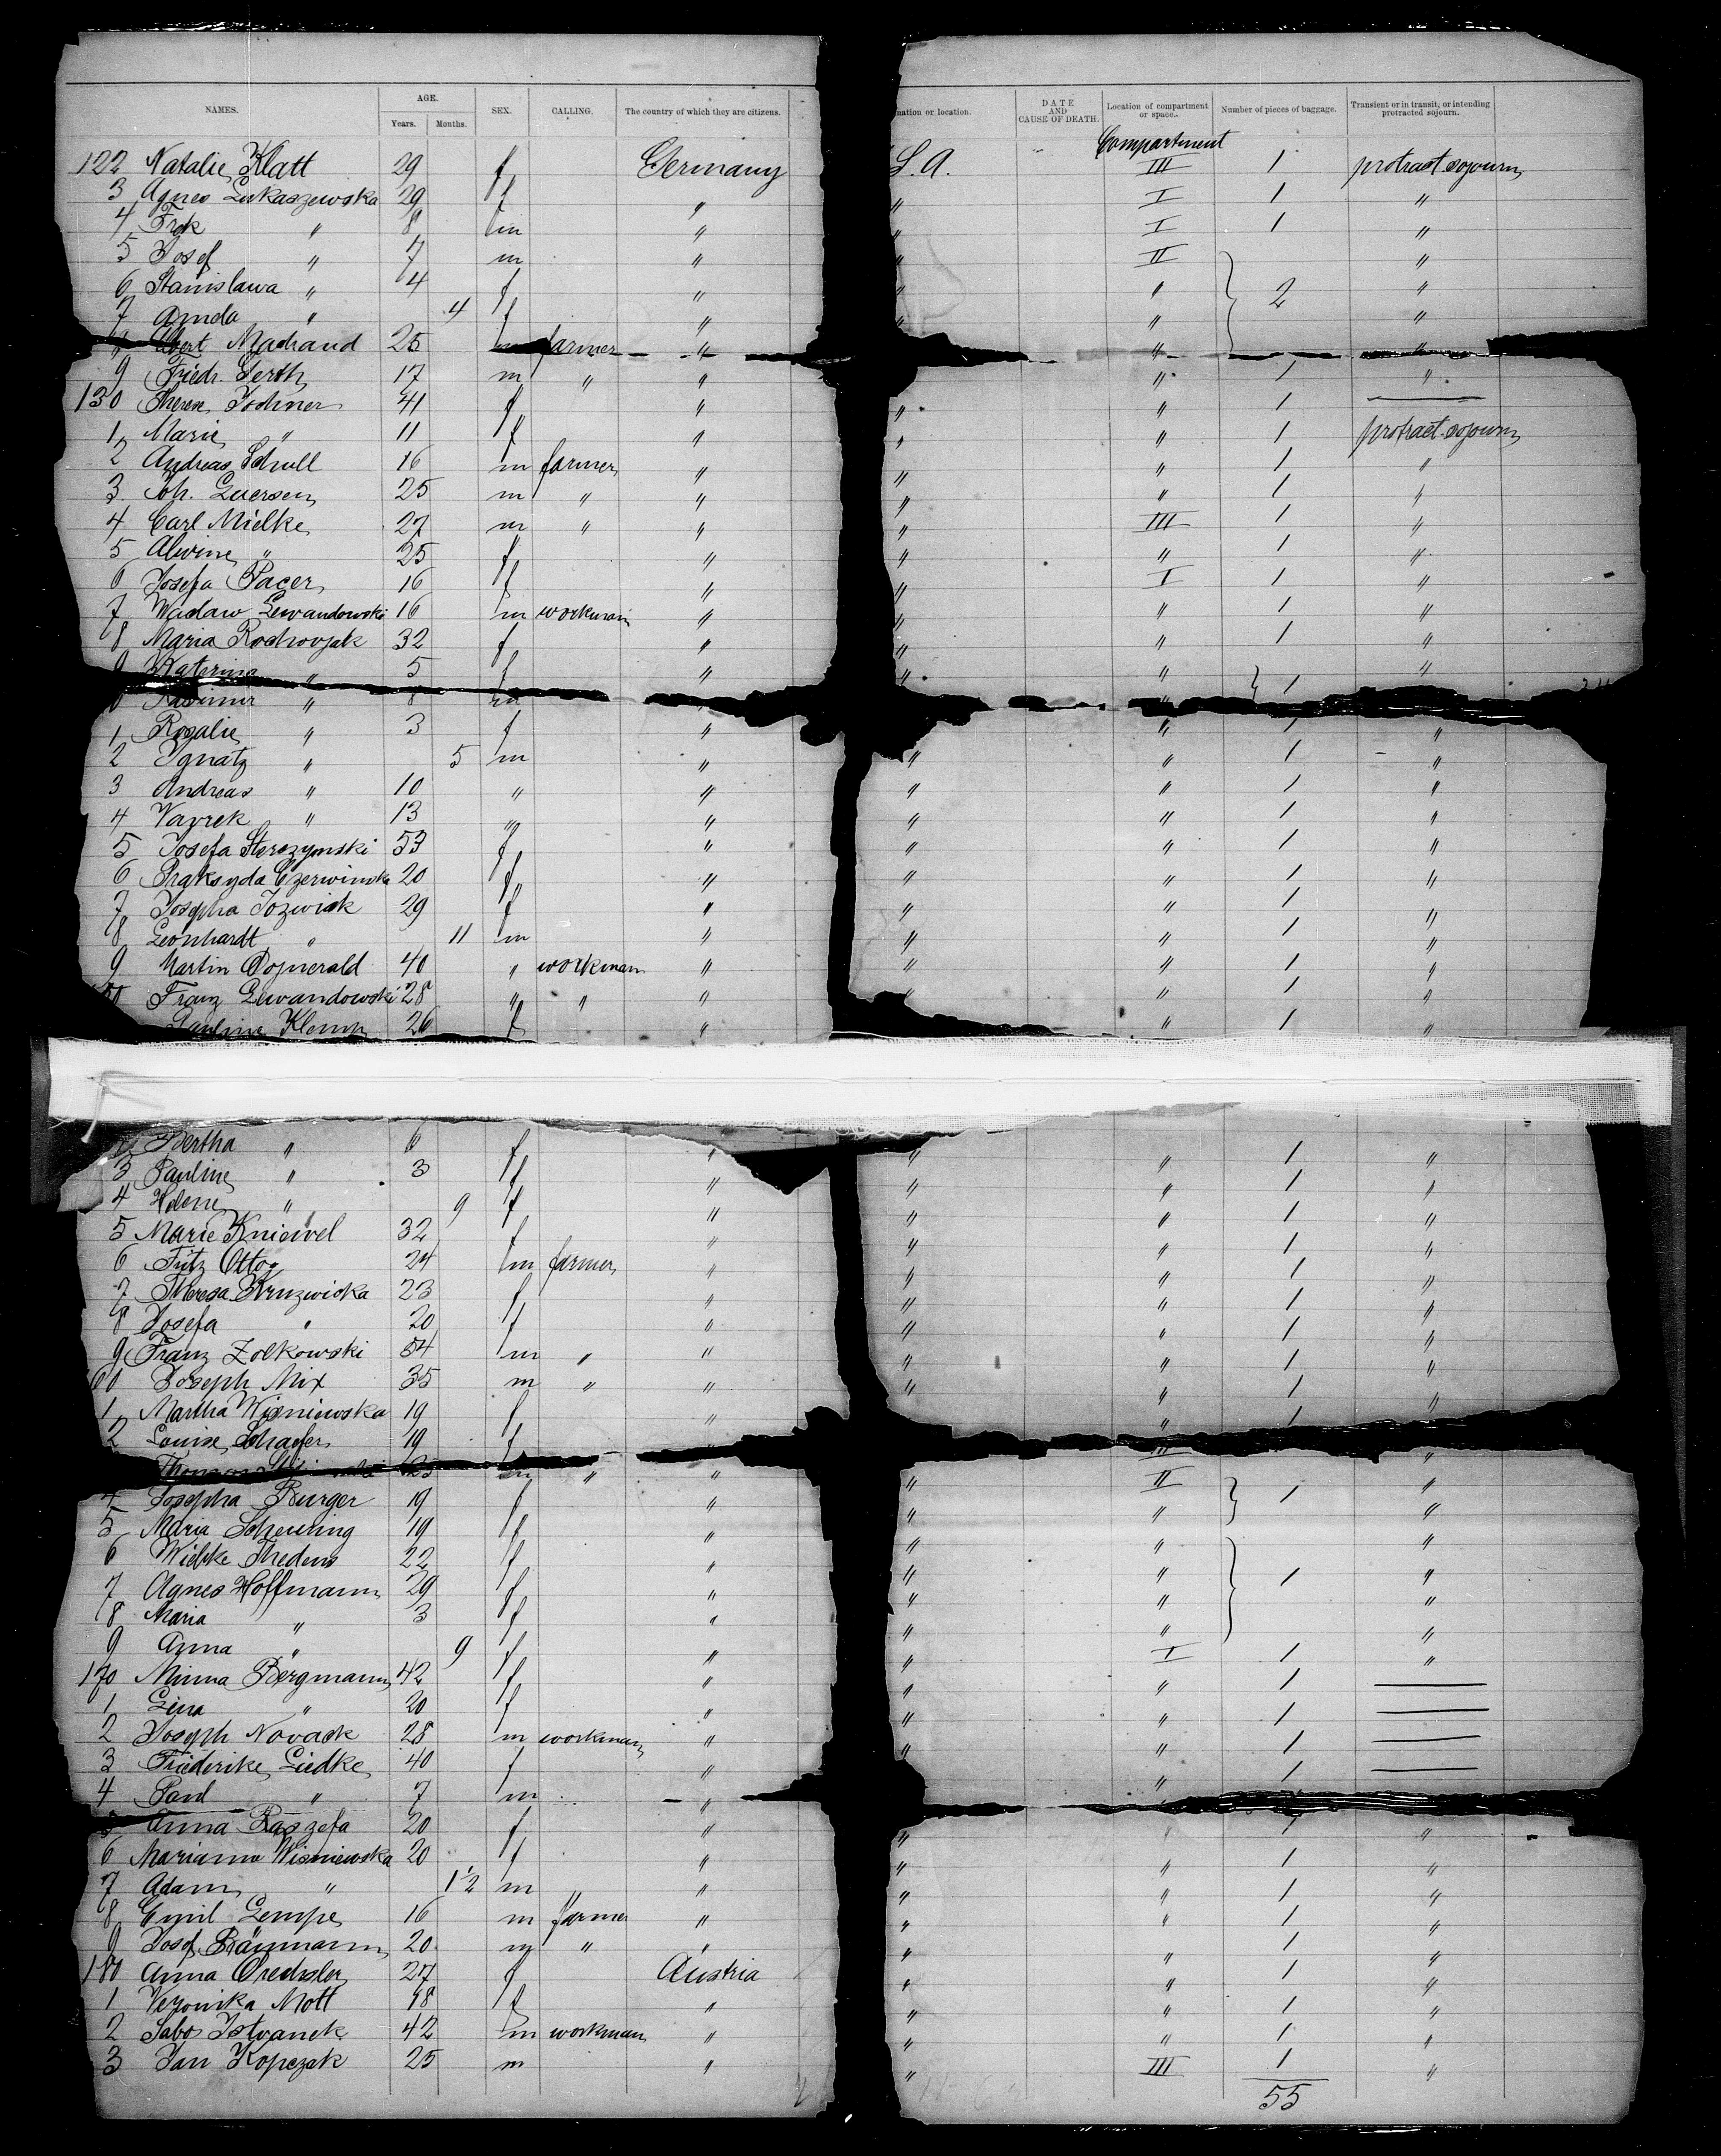 NAMES. AGE. Years. Months. SEX. CALLING. The country of which they are citizens. nation or location. DATE AND CAUSE OF DEATH. Location of compartment or space. Number of pieces of baggage. Transient or in transit, or intending protracted sojourn.
Compartment
122 Natalie Klatt 29 f Germany S. A. III 1 protract sojourn
3 Agnes Lukaszewska 29 f " " I 1 "
4 Frk " 8 m " " I 1 "
5 Josef " 7 m " " II "
6 Stanislawa " 4 f " " " 2 "
7 " 4 f " " " "
Albert Machand 25 m farmer " " "
9 Friedr. Gerth 17 m " " " 1 "
130 Therese Jochner 41 f " " " 1 —
1 Marie " 11 f " " " 1 protract sojourn
2 Andreas Schull 16 m farmer " " " 1 "
3 Joh. Luersen 25 m " " " " 1 "
4 Carl Mielke 27 m " " " III 1 "
5 Alwine " 25 f " " " 1 "
6 Josefa Pacer 16 f " " I 1 "
7 Waclaw Lewandowski 16 m workman " " " 1 "
8 Maria Rochovjak 32 f " " " 1 "
9 Katrina " 5 f " " " 1 "
0 Kasimir " 8 m "
1 Rosalie " 3 f " " 1 "
2 Ignatz " 5 m " " " 1 "
3 Andreas " 10 " " " " 1 "
4 Vayrek " 13 " " " " 1 "
5 Josefa Sterczynski 53 f " " " 1 "
6 Praksyda Czerwinska 20 f " " " 1 "
7 Josepha Jozwiak 29 f " " " 1 "
8 Leonhardt " 11 m " " " 1 "
9 Martin Dognerald 40 " workman " " " 1 "
150 Franz Lewandowski 28 " " " " " 1 "
Pauline Klemp 26 f " " 1 "
Bertha " 6 f " " " 1 "
3 Pauline " 3 f " " " 1 "
4 Helene " 9 f " " " 1 "
5 Marie Kniewel 32 f " " " 1 "
6 Fritz Otto 24 m farmer " " " 1 "
7 Theresa Kruzwicka 23 f " " " 1 "
8 Josefa " 20 f " " " 1 "
9 Franz Zolkowski 54 m " " " " 1 "
60 Joseph Mix 35 m " " " " 1 "
1 Martha Wisniewska 19 f " " 1 "
2 Louise Schaefer 19 f III "
Thomas 23 m " " " II "
4 Josepha Burger 19 f " " " 1 "
5 Maria Scheuring 19 f " " " "
6 Wiebke Thedens 22 f " " " "
7 Agnes Hoffmann 29 f " " " 1 "
8 Maria " 3 f " " " "
9 Anna " 9 f " " I 1 "
170 Minna Bergmann 42 f " " " 1 —
1 Lina " 20 f " " " 1 —
2 Joseph Novack 28 m workman " " " 1 —
3 Friederike Liedke 40 f " " " 1 —
4 Paul " 7 m "
5 Anna Raszefa 20 f " " " 1 "
6 Marianna Wisniewska 20 f " " " 1 "
7 Adam " 1½ m " " " " 1 "
8 Emil Lempe 16 m farmer " " " 1 "
9 Josef Bräumann 20 m " " " " 1 "
180 Anna Drechsler 27 f Austria " " 1 "
1 Veronika Mott 18 f " " " 1 "
2 Sabos Istvanek 42 m workman " " " 1 "
3 Jan Kopczak 25 m " " III 1 "
55